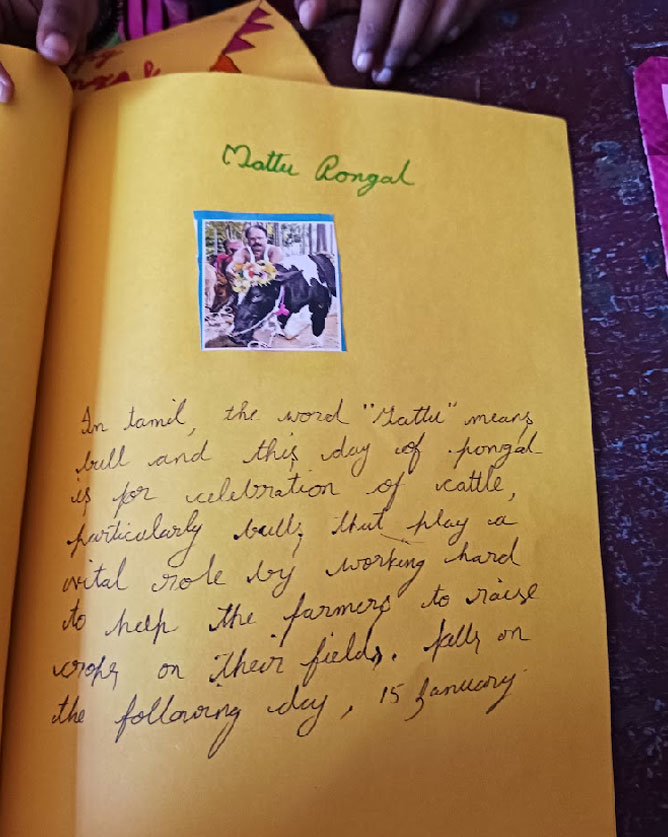 Mattu Pongal
In tamil, the word "Mattu" means
bull and this day of pongal
is for celebration of cattle,
particularly bulls that play a
vital role by working hard
to help the farmers to raise
crops on their fields. falls on
the following day, 15 January.